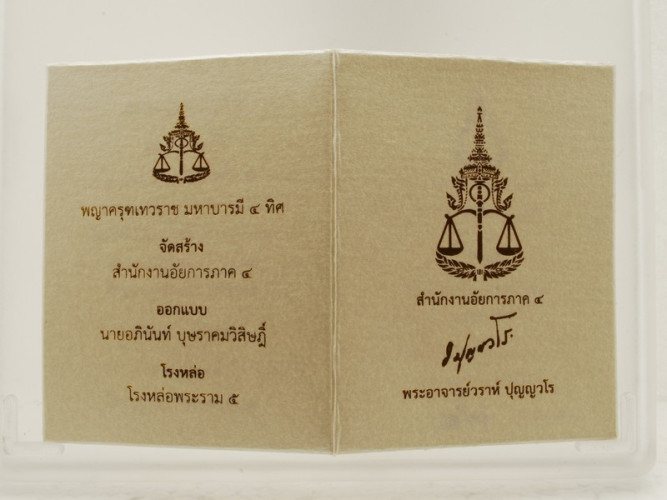 พญาครุฑเทวราช มหาบารมี ๔ ทิศ
จัดสร้าง
สำนักงานอัยการภาค ๔
ออกแบบ
นายอภินันท์ บุษราคมวิสิษฎิ์
โรงหล่อ
โรงหล่อพระราม ๕
สำนักงานอัยการภาค ๔
พระอาจารย์วราห์ ปุญญวโร